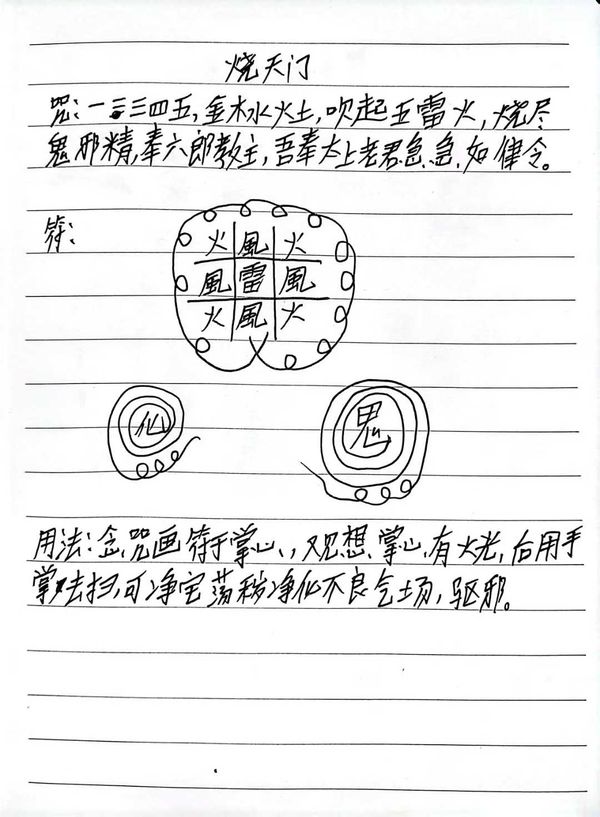 烧天门
咒:一二三四五,金木水火土,吹起五雷火,烧尽
鬼邪精,奉六郎教主,吾奉太上老君急急如律令。
符:
火風火
風雷風
火風火
仙 鬼
用法:念咒画符于掌心,,观想掌心有火光,后用手
掌去扫,可净宅荡秽净化不良气场,驱邪。